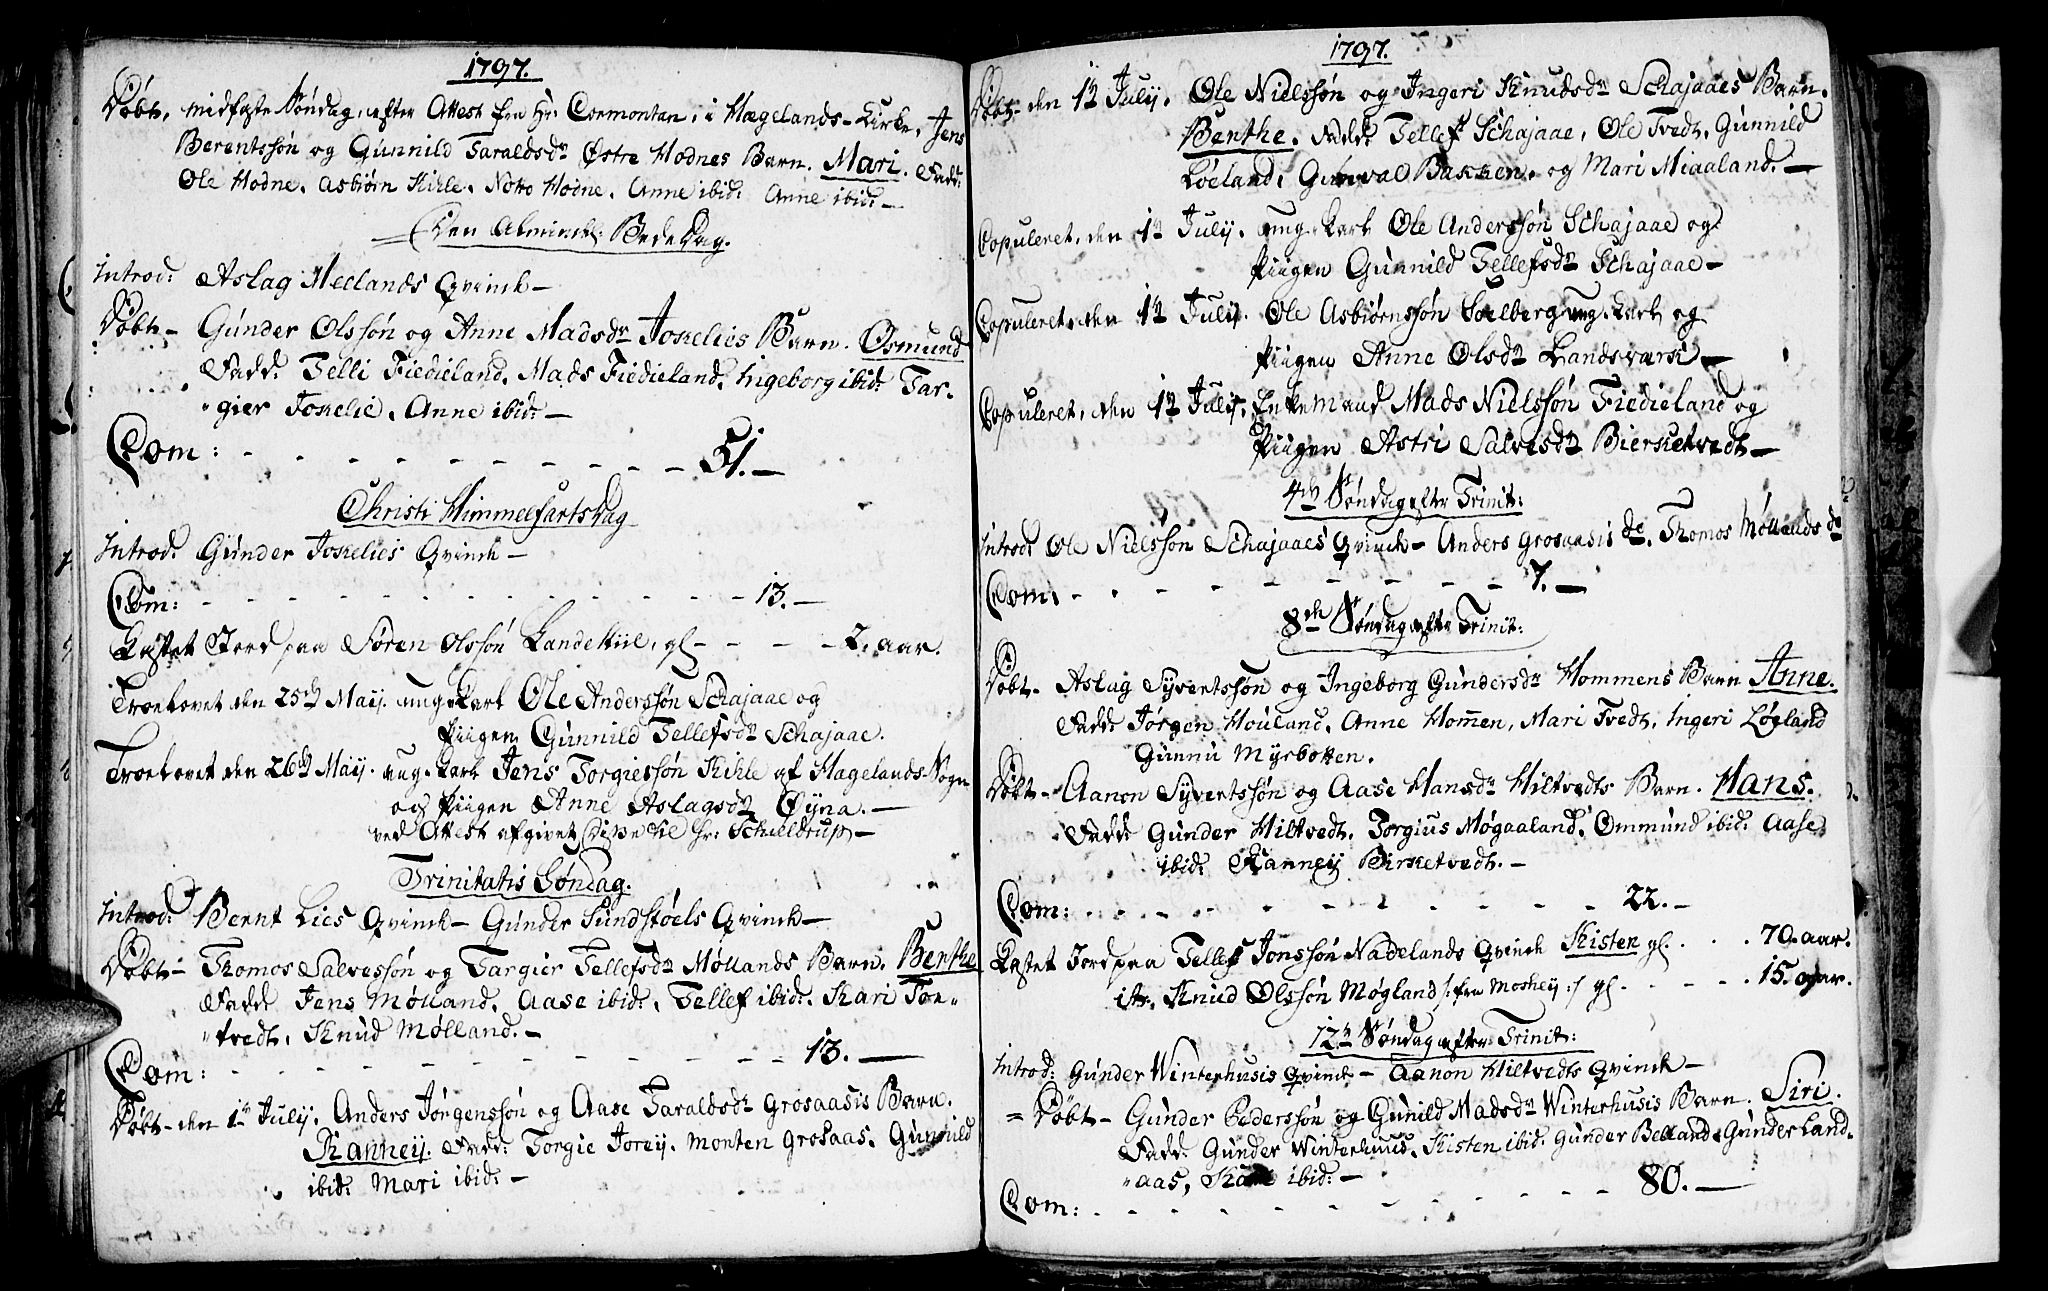 1797.
Döbt, midfaste Söndag, efter Attest fra Hr: Cormontan, i Hægelands-Kirke, Jens
Berentssön og Gunnild Taraldsdr Östre Hodnes Barn. Mari. Fadd:
Ole Hodne. Asbiörn Kihle. Noto Hodne. Anne ibid: Anne ibid:—
Den Almindel: BedeDag.
Introd: Aslag Meelands Qvinck—
Döbt— Gunder Olssön og Anne Madsdr Joskelies Barn. Osmund
Fadd. Telli Fiedieland. Mads Fiedieland. Ingeborg ibid: Tar-
"gier Joskelie. Anne ibid:—
Com: - - - - - - - - - - 51.—
Christi Himmelfartsdag
Introd: Gunder Joskelies Qvinck—
Com: - - - - - - - - - - 13.—
Kastet Jord paa Sören Olssön Landekiil. gl - - - - 2. aar.
Troelovet den 25de Maij. ung Karl Ole Anderssön Schajaae og
Piigen Gunnild Tellefsdr Schajaae.
Troelovet den 26de Maij. ung Karl Jens Torgiessön Kihle af Hægelands-Sogn
og Piigen Anne Aslagsdr Öyna.—
ved Attest afgivet til Hr: Schieldrup—
Trinitatis Söndag.
Introd: Bernt Lies Qvinck— Gunder Sundstöels Qvinck—
Döbt— Thomos Salvessön og Targier Tellefsdr Möllands Barn. Benthe
Fadd Jens Mölland. Aase ibid:. Tellef ibid:. Kari Tor-
"tvedt, Knud Mölland.—
Com: - - - - - - - - - - 13.—
Döbt- den 1te July. Anders Jörgenssön og Aase Taraldsdr Grosaasis Barn.
Ranney. Fadd: Torgie Jorey. Monten Grosaas. Gunnild
ibid: Mari ibid:—
1797.
Döbt- den 1te July. Ole Nielssön og Ingeri Knudsdr Schajaaes Barn.
Benthe. Fadd: Tellef Schajaae, Ole Tvedt, Gunnild
Löeland, Gunval Bakken. og Mari Miaaland.—
Copuleret, den 1te July. ung Karl Ole Anderssön Schajaae og
Piigen Gunnild Tellefsdr Schajaae—
Copuleret, den 1te July. Ole Asbiörnssön Solberg ung Karl og
Piigen Anne Olsdr Landsværk—
Copuleret, den 1te July. Enkemand Mads Nielssön Fiedieland og
Piigen Astri Salvesdr Bierketvedt—
4de Söndag efter Trinit:
Introd: Ole Nielssön Schajaaes Qvinck— Anders Grosaasis do. Thomos Möllands do
Com: - - - - - - - - 7.—
8de Söndag efter Trinit:
Döbt— Aslag Syvertssön og Ingeborg Gundersdr Hommens Barn Anne.
Fadd: Jörgen Houland. Anne Hommen, Mari Tvedt, Ingeri Lögland
Gunnu Myrbotten.
Döbt— Aanon Syvertssön og Aase Hansdr Hiltvedts Barn. Hans.
Fadd: Gunder Hiltvedt. Torgius Mögaaland. Ommund ibid: Aase
ibid: Ranney Birketvedt.—
Com: - - - - - - - - 22.—
Kastet Jord paa Tellef Jonssön Nadelands Qvinck Kisten gl. . . . 70. aar.
ito. Knud Olssön Mögland /: fra Moshey :/ gl. - - - - 15. aar.
12te Söndag efter Trinit:
Introd: Gunder Winterhusis Qvinck— Aanon Hiltvedts Qvinck—
= Döbt— Gunder Pederssön og Gunild Madsdr Winterhusis Barn. Siri.
Fadd: Gunder Winterhuus. Kisten ibid. Gunder Belland. Gunder Land-
"aas, ibid:—
Com: - - - - - - - - 80.—